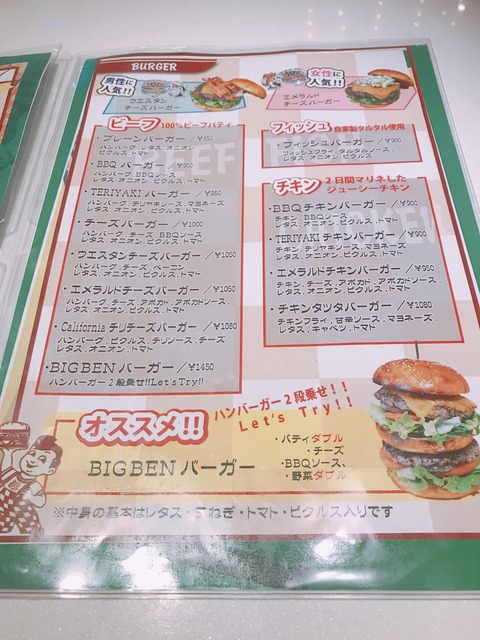 BURGER
男性に
人気!!
ウエスタン
チーズバーガー
女性に
人気!!
エメラルド
チーズバーガー
ビーフ 100%ビーフパティ
・プレーンバーガー／¥850
ハンバーグ,レタス,オニオン
ピクルス,トマト
・BBQ バーガー／¥950
ハンバーグ,BBQソース
レタス,オニオン,ピクルス,トマト
・TERIYAKI バーガー／¥950
ハンバーグ,テリヤキソース,マヨネーズ
レタス,オニオン,ピクルス,トマト
・チーズバーガー／¥1000
ハンバーグ,チーズ,BBQソース
レタス,オニオン,ピクルス,トマト
・ウエスタンチーズバーガー／¥1050
ハンバーグ,チーズ,ベーコン
レタス,オニオン,ピクルス,トマト
・エメラルドチーズバーガー／¥1050
ハンバーグ,チーズ,アボカド,アボカドソース,
レタス,オニオン,ピクルス,トマト
・California チリチーズバーガー／¥1080
ハンバーグ,ピクルス,チリソース,チーズ
レタス,オニオン,トマト
・BIGBEN バーガー／¥1450
ハンバーグ2段乗せ!!Let's Try!!
フィッシュ 自家製タルタル使用
・フィッシュバーガー／¥900
フィッシュフライ,タルタルソース,
レタス,オニオン,ピクルス
チキン 2日間マリネした
ジューシーチキン
・BBQチキンバーガー／¥900
チキン,BBQソース,
レタス,オニオン,ピクルス,トマト
・TERIYAKI チキンバーガー／¥900
チキン,テリヤキソース,マヨネーズ
レタス,オニオン,ピクルス,トマト
・エメラルドチキンバーガー／¥950
チキン,チーズ,アボカド,アボカドソース,
レタス,オニオン,ピクルス,トマト
・チキンタツタバーガー／¥1080
チキンフライ,甘辛ソース,マヨネーズ,
レタス,キャベツ,トマト
オススメ!!
ハンバーガー2段乗せ!!
Let's Try!!
BIGBEN バーガー
・パティダブル
・チーズ
・BBQソース、
・野菜ダブル
※中身の基本はレタス・玉ねぎ・トマト・ピクルス入りです